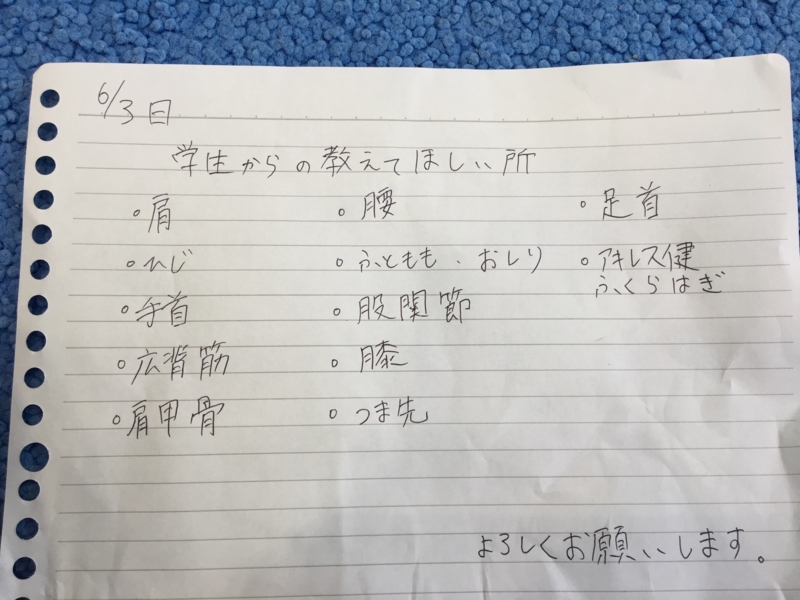 6/3日
学生からの教えてほしい所
。肩
。ひじ
。手首
。広背筋
。肩甲骨
。腰
。ふともも、おしり
。股関節
。膝
。つま先
。足首
。アキレス健
ふくらはぎ
よろしくお願いします。